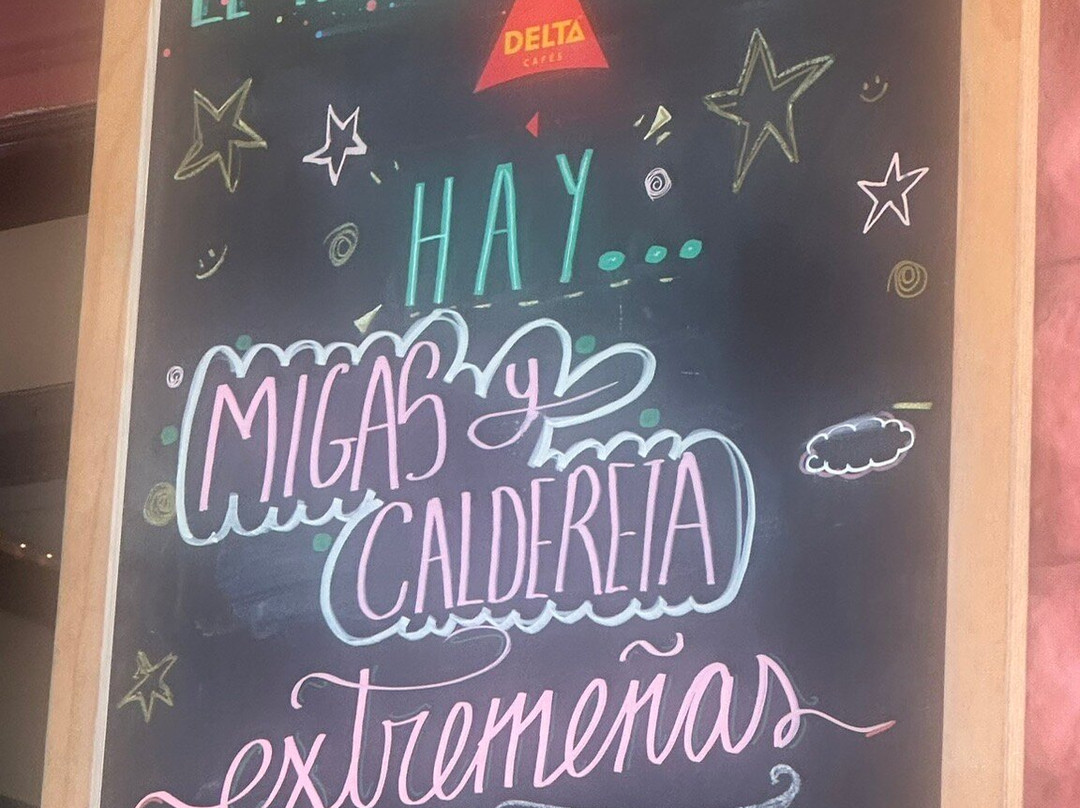 DELTA
CAFÉS
HAY...
MIGAS y
CALDERETA
extremeñas